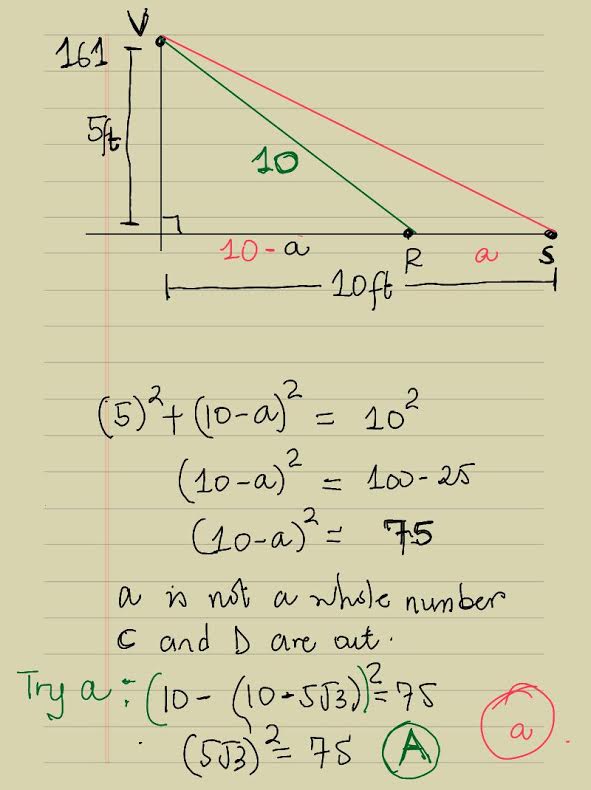 V
161
5ft
10
10-a
R
a
S
10ft
(5)² + (10-a)² = 10²
(10-a)² = 100-25
(10-a)² = 75
a is not a whole number
C and D are out.
Try a : (10 - (10-5√3))² = 75
(5√3)² = 75 A
a